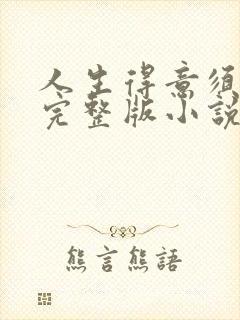 人生得意須
完整版小說
熊言熊語